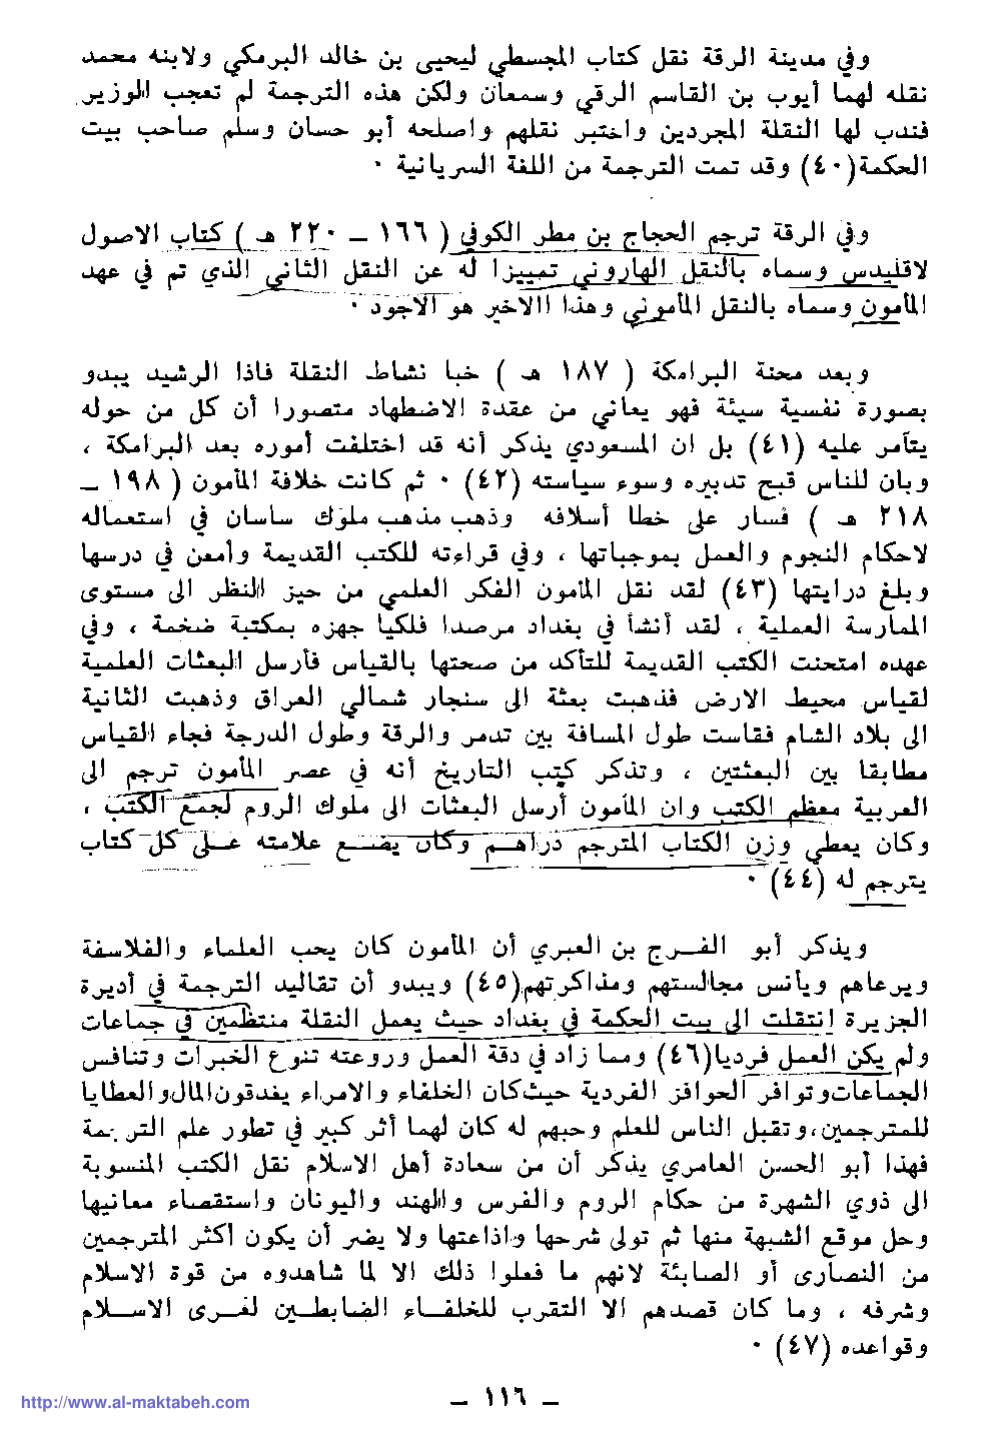 وفي مدينة الرقة نقل كتاب المجسطي ليحيى بن خالد البرمكي ولابنه محمد
نقله لهما أيوب بن القاسم الرقي وسمعان ولكن هذه الترجمة لم تعجب الوزير
فندب لها النقلة المجردين واختبر نقلهم واصلحه أبو حسان وسلم صاحب بيت
الحكمة (٤٠) وقد تمت الترجمة من اللغة السريانية ٠
وفي الرقة ترجم الحجاج بن مطر الكوفي ( ١٦٦ ــ ٢٢٠ هـ ) كتاب الاصول
لاقليدس وسماه بالنقل الهاروني تمييزا له عن النقل الثاني الذي تم في عهد
المأمون وسماه بالنقل المأموني وهذا االاخير هو الاجود ٠
وبعد محنة البرامكة ( ١٨٧ هـ ) خبا نشاط النقلة فاذا الرشيد يبدو
بصورة نفسية سيئة فهو يعاني من عقدة الاضطهاد متصورا أن كل من حوله
يتآمر عليه (٤١) بل ان المسعودي يذكر أنه قد اختلفت أموره بعد البرامكة ،
وبان للناس قبح تدبيره وسوء سياسته (٤٢) ٠ ثم كانت خلافة المأمون ( ١٩٨ ــ
٢١٨ هـ ) فسار على خطا أسلافه وذهب مذهب ملوك ساسان في استعماله
لاحكام النجوم والعمل بموجباتها ، وفي قراءته للكتب القديمة وأمعن في درسها
وبلغ درايتها (٤٣) لقد نقل المأمون الفكر العلمي من حيز النظر الى مستوى
الممارسة العملية ، لقد أنشأ في بغداد مرصدا فلكيا جهزه بمكتبة ضخمة ، وفي
عهده امتحنت الكتب القديمة للتأكد من صحتها بالقياس فأرسل البعثات العلمية
لقياس محيط الارض فذهبت بعثة الى سنجار شمالي العراق وذهبت الثانية
الى بلاد الشام فقاست طول المسافة بين تدمر والرقة وطول الدرجة فجاء القياس
مطابقا بين البعثتين ، وتذكر كتب التاريخ أنه في عصر المأمون ترجم الى
العربية معظم الكتب وان المأمون أرسل البعثات الى ملوك الروم لجمع الكتب ،
وكان يعطي وزن الكتاب المترجم دراهـم وكان يضـع علامته علـى كل كتاب
يترجم له (٤٤) ٠
ويذكر أبو الفـرج بن العبري أن المأمون كان يحب العلماء والفلاسفة
ويرعاهم ويأنس مجالستهم ومذاكرتهم (٤٥) ويبدو أن تقاليد الترجمة في أديرة
الجزيرة انتقلت الى بيت الحكمة في بغداد حيث يعمل النقلة منتظمين في جماعات
ولم يكن العمل فرديا (٤٦) ومما زاد في دقة العمل وروعته تنوع الخبرات وتنافس
الجماعات وتوافر الحوافز الفردية حيث كان الخلفاء والامراء يغدقون المال والعطايا
للمترجمين ، وتقبل الناس للعلم وحبهم له كان لهما أثر كبير في تطور علم الترجمة
فهذا أبو الحسن العامري يذكر أن من سعادة أهل الاسلام نقل الكتب المنسوبة
الى ذوي الشهرة من حكام الروم والفرس والهند واليونان واستقصاء معانيها
وحل موقع الشبهة منها ثم تولى شرحها واذاعتها ولا يضر أن يكون أكثر المترجمين
من النصارى أو الصابئة لانهم ما فعلوا ذلك الا لما شاهدوه من قوة الاسلام
وشرفه ، وما كان قصدهم الا التقرب للخلفـاء الضابطـين لعـرى الاسـلام
وقواعده (٤٧) ٠
ــ ١١٦ ــ
http://www.al-maktabeh.com